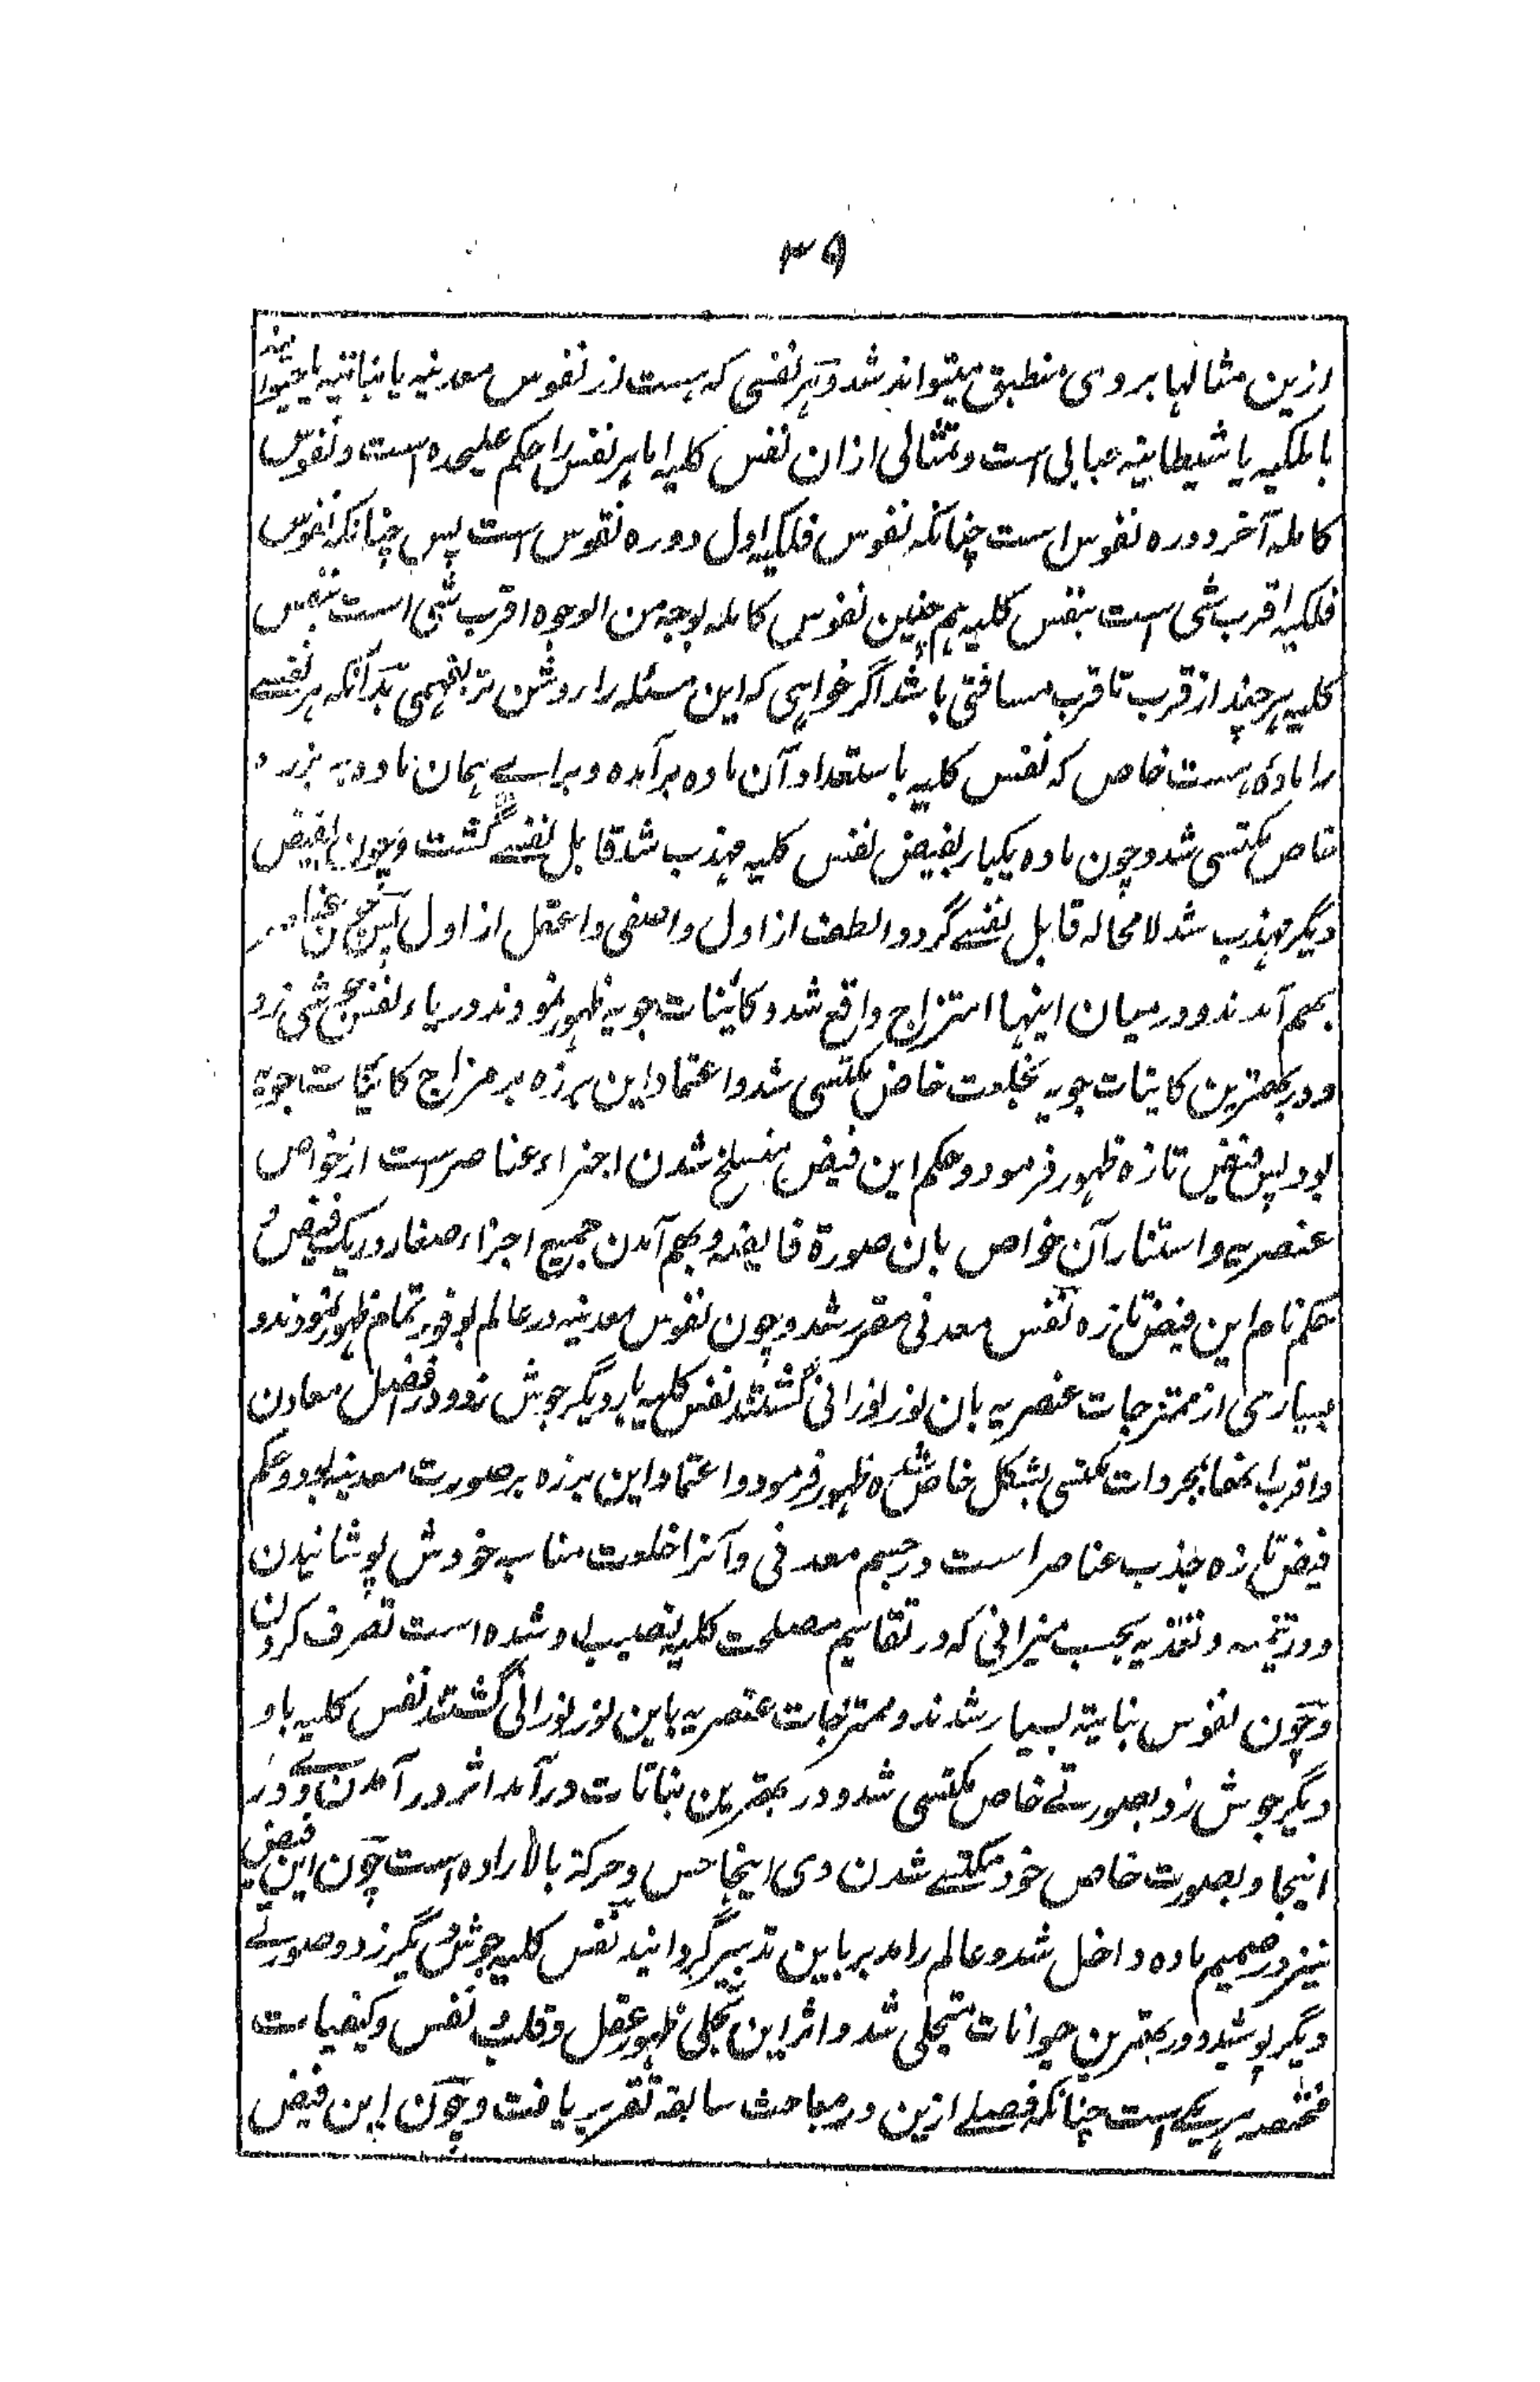 ۳۹
ازین مثالها بروی منطبق میتواند شد و هر نفسی که هست از نفوس معدنیه یا نباتیه یا حیوانیه
یا ملکیه یا شیطانیه حبابی است و تمثالی ازان نفس کلیه اما هر نفس را حکم علیحده است و نفوس
کامله آخر دوره نفوس است چنانکه نفوس فلکیه اول دوره نفوس است پس چنانکه نفوس
فلکیه اقرب شی است بنفس کلیه هم چنین نفوس کامله بوجه من الوجوه اقرب شی است بنفس
کلیه هر چند از قرب تا قرب مسافتی باشد اگر خواهی که این مسئله را روشن تر بفهمی بدانکه هر نفسے
را مادهٔ هست خاص که نفس کلیه باستعداد آن ماده برآمده و براے همان ماده به برزه
خاص مکتسی شد و چون ماده یکبار بفیض نفس کلیه مهذب شد قابل نفسے گشت و چون بفیض
دیگر مهذب شد لامحاله قابل نفسے گردد الطف از اول و اصفی و اعقل از اول پس چون عناصر
بهم آمدند و درمیان اینها امتزاج واقع شد و کائنات جویه ظهور نمودند دریاء نفس کلیه جوش زد
و در بهترین کاینات جویه بخلعت خاص مکتسی شد و اعتماد این برزه بر مزاج کاینات جویة
بود پس فیض تازه ظهور فرمود و حکم این فیض منسلخ شدن اجزاء عناصر است از خواص
عنصریه و استتار آن خواص بان صورة فایضه و بهم آمدن جمیع اجزاء صغار در یک فیض و
حکم نام این فیض تازه نفس معدنی مقرر شد و چون نفوس معدنیه در عالم بوفور تمام ظهور نمودند و
بسیاری از ممتزجات عنصریه بان نور نورانی گشتند نفس کلیه بار دیگر جوش زد و در افضل معادن
و اقرب بمجردات مکتسی بشکل خاص شده ظهور فرمود و اعتماد این برزه بر صورت معدنیه بود و حکم
فیض تازه جذب عناصر است در جسم معدنی و آنرا خلعت مناسب خودش پوشانیدن
و در تنمیه و تغذیه بحسب میزانی که در تقاسیم مصلحت کلیه نصیب او شده است تصرف کردن
و چون نفوس نباتیه بسیار شدند و ممتزجات عنصریه باین نور نورانی گشتند نفس کلیه بار
دیگر جوش زد بصورتے خاص مکتسی شد و در بهترین نباتات درآمد اثر در آمدن وے در
اینجا و بصورت خاص خود مکتسے شدن وی اینجا حس و حرکة بالاراده است چون این فیض
نیز در صمیم ماده داخل شد و عالم را مدبر باین تدبیر گردانید نفس کلیه جوش دیگر زد و صورتے
دیگر پوشید و در بهترین حیوانات متجلی شد و اثر این تجلی ظهور عقل و قلب و نفس و کیفیات
مختصه هر یکے است چنانکه فصلے ازین در مباحث سابقه تقریر یافت و چون این فیض